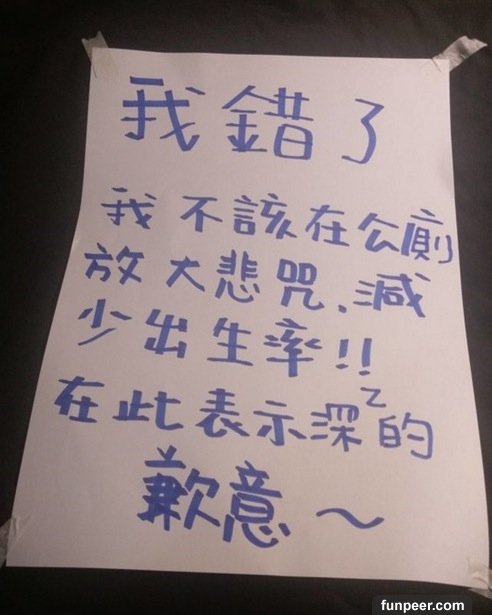 我錯了
我不該在公廁
放大悲咒、減
少出生率!!
在此表示深ㄛ的
歉意~
funpeer.com